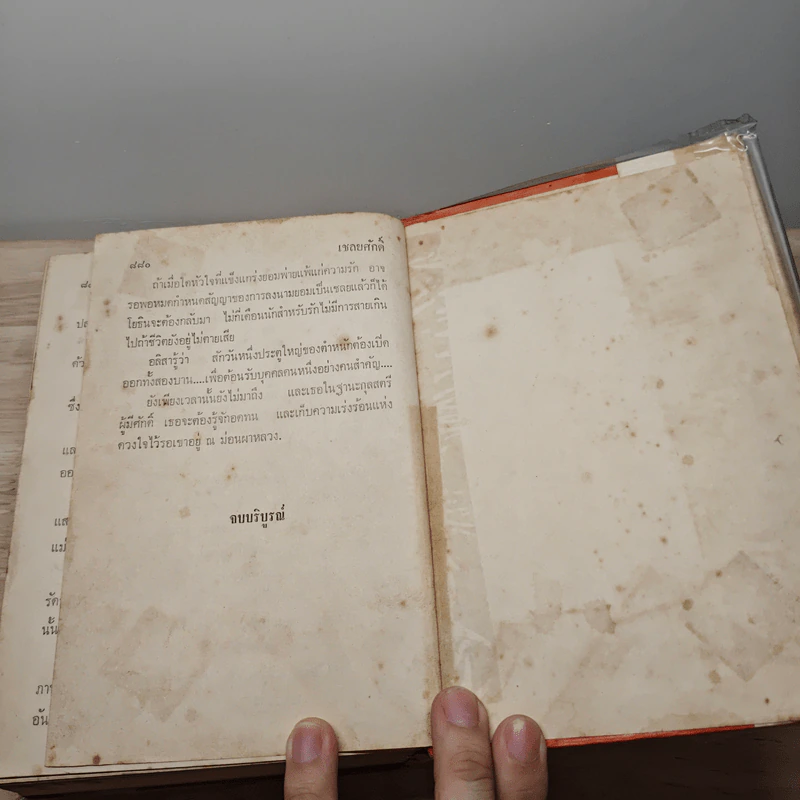 ๘๘๐
เชลยศักดิ์
ถ้าเมื่อใดหัวใจที่แข็งแกร่งยอมพ่ายแพ้แก่ความรัก อาจ
รอพอหมดกำหนดสัญญาของการลงนามยอมเป็นเชลยแล้วก็ได้
โยธินจะต้องกลับมา ไม่กี่เดือนนักสำหรับรักไม่มีการสายเกิน
ไปถ้าชีวิตยังอยู่ไม่ตายเสีย
อลิสารู้ว่า สักวันหนึ่งประตูใหญ่ของตำหนักต้องเปิด
ออกทั้งสองบาน....เพื่อต้อนรับบุคคลคนหนึ่งอย่างคนสำคัญ....
ยังเพียงเวลานั้นยังไม่มาถึง และเธอในฐานะกุลสตรี
ผู้มีศักดิ์ เธอจะต้องรู้จักอดทน และเก็บความเร่งร้อนแห่ง
ดวงใจไว้รอเขาอยู่ ณ ม่อนผาหลวง.
จบบริบูรณ์